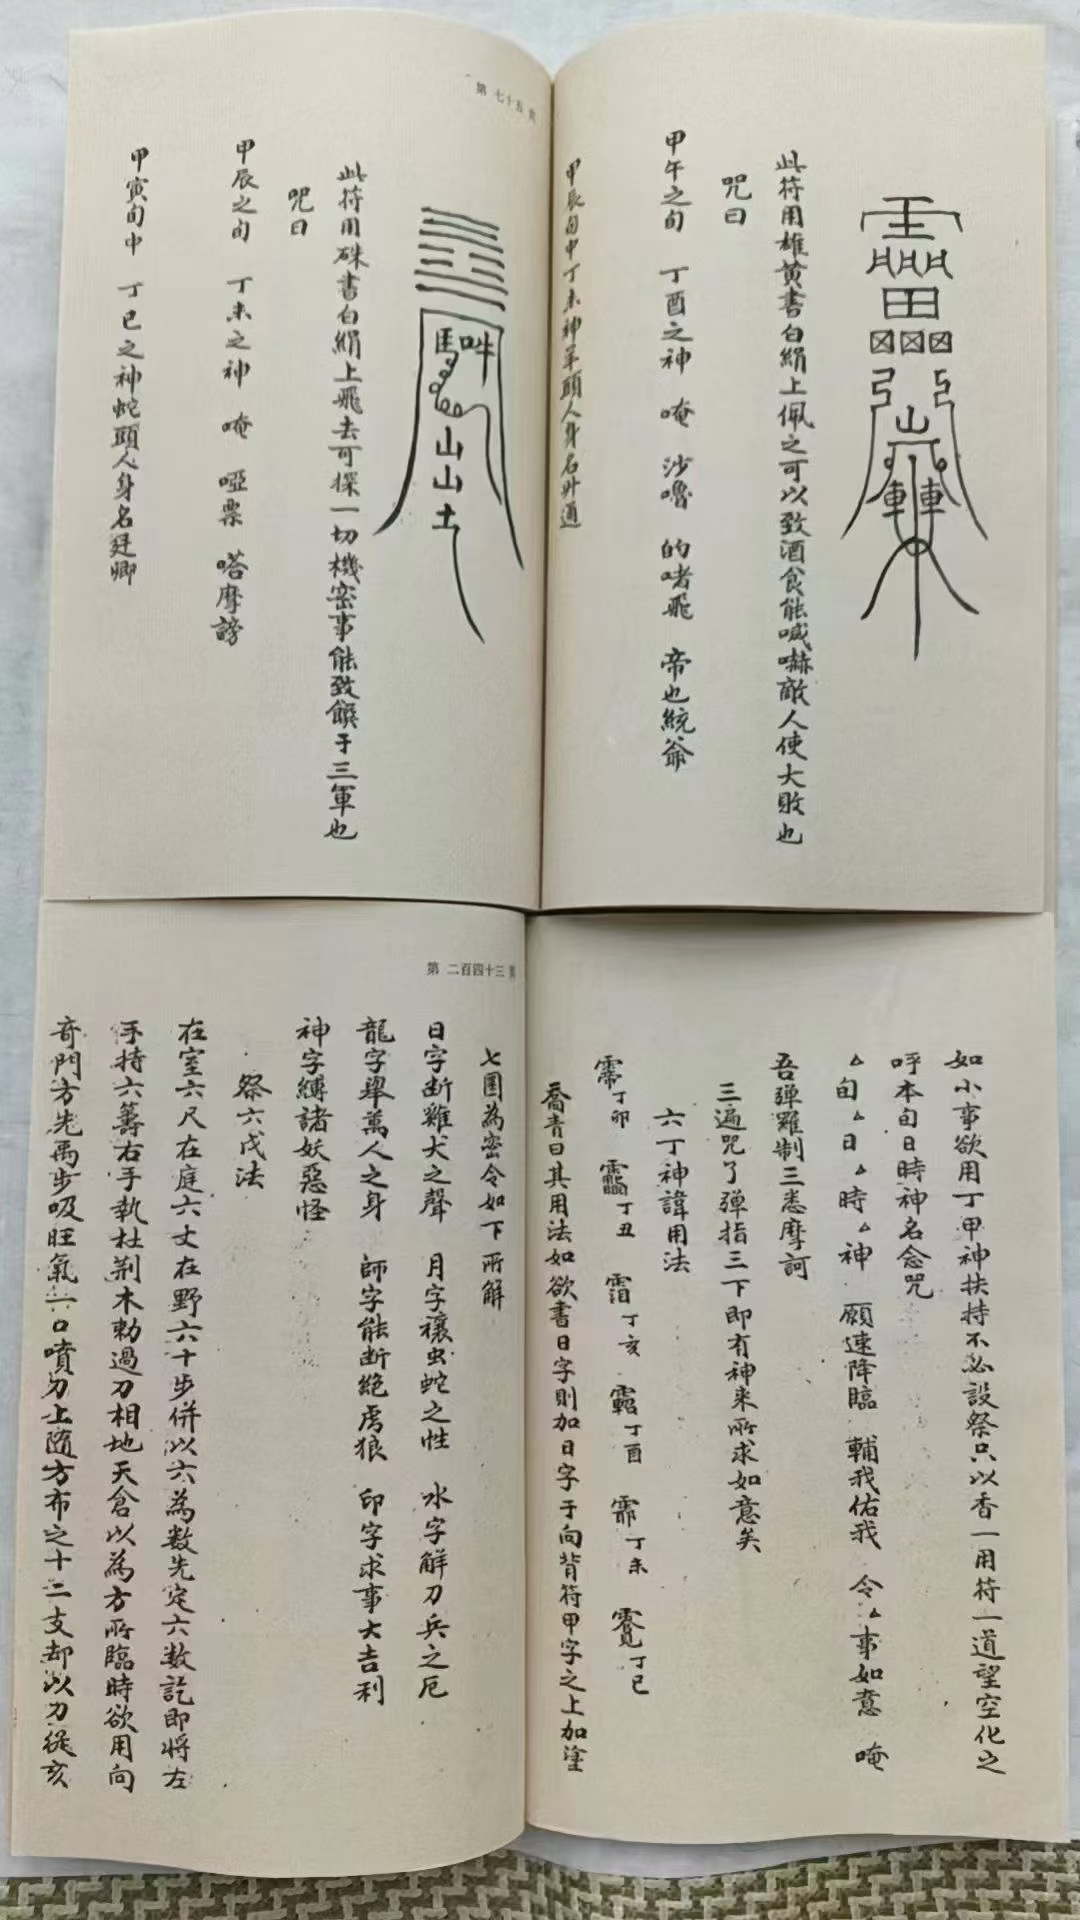 此符用雄黄書白絹上佩之可以致酒食能喊嚇敵人使大敗也
咒曰
甲午之旬　丁酉之神　唵　沙嚕　的啫飛　帝也統爺
甲辰旬中丁未神羊頭人身名升通
第 七十五 頁
馬 吽
山
山
土
此符用硃書白絹上飛去可探一切機密事能致饌于三軍也
咒曰
甲辰之旬　丁未之神　唵　啞票　嗒摩謗
甲寅旬中　丁巳之神蛇頭人身名廷卿
如小事欲用丁甲神扶持不必設祭只以香一用符一道望空化之
呼本旬日時神名念咒
△旬△日△時△神　願速降臨　輔我佑我　令△事如意　唵
吾弹羅制三悉摩訶
三遍咒了弹指三下即有神来所求如意矣
六丁神諱用法
丁卯　丁丑　丁亥　丁酉　丁未　丁巳
喬青曰其用法如欲書日字則加日字于向背符甲字之上加塗
第 二百四十三 頁
七圍為密令如下所解
日字断雞犬之聲　月字禳虫蛇之性　水字解刀兵之厄
龍字舉萬人之身　師字能断絶虎狼　印字求事大吉利
神字縛諸妖惡怪
祭六戊法
在室六尺在庭六丈在野六十步併以六為数先定六数訖即將左
手持六籌右手執杜荆木勅過刀相地天倉以為方所臨時欲用向
奇門方先禹步吸旺氣一口噴刀上随方布之十二支却以刀從亥